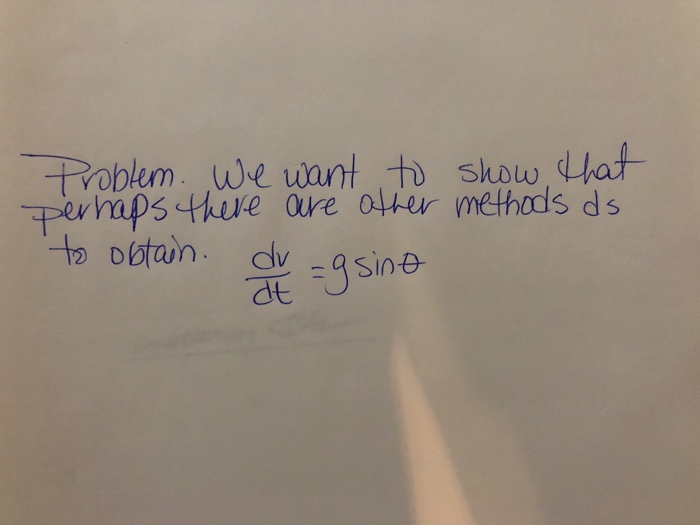 Problem. We want to show that
perhaps there are other methods ds
to obtain. dv/dt = g sinθ